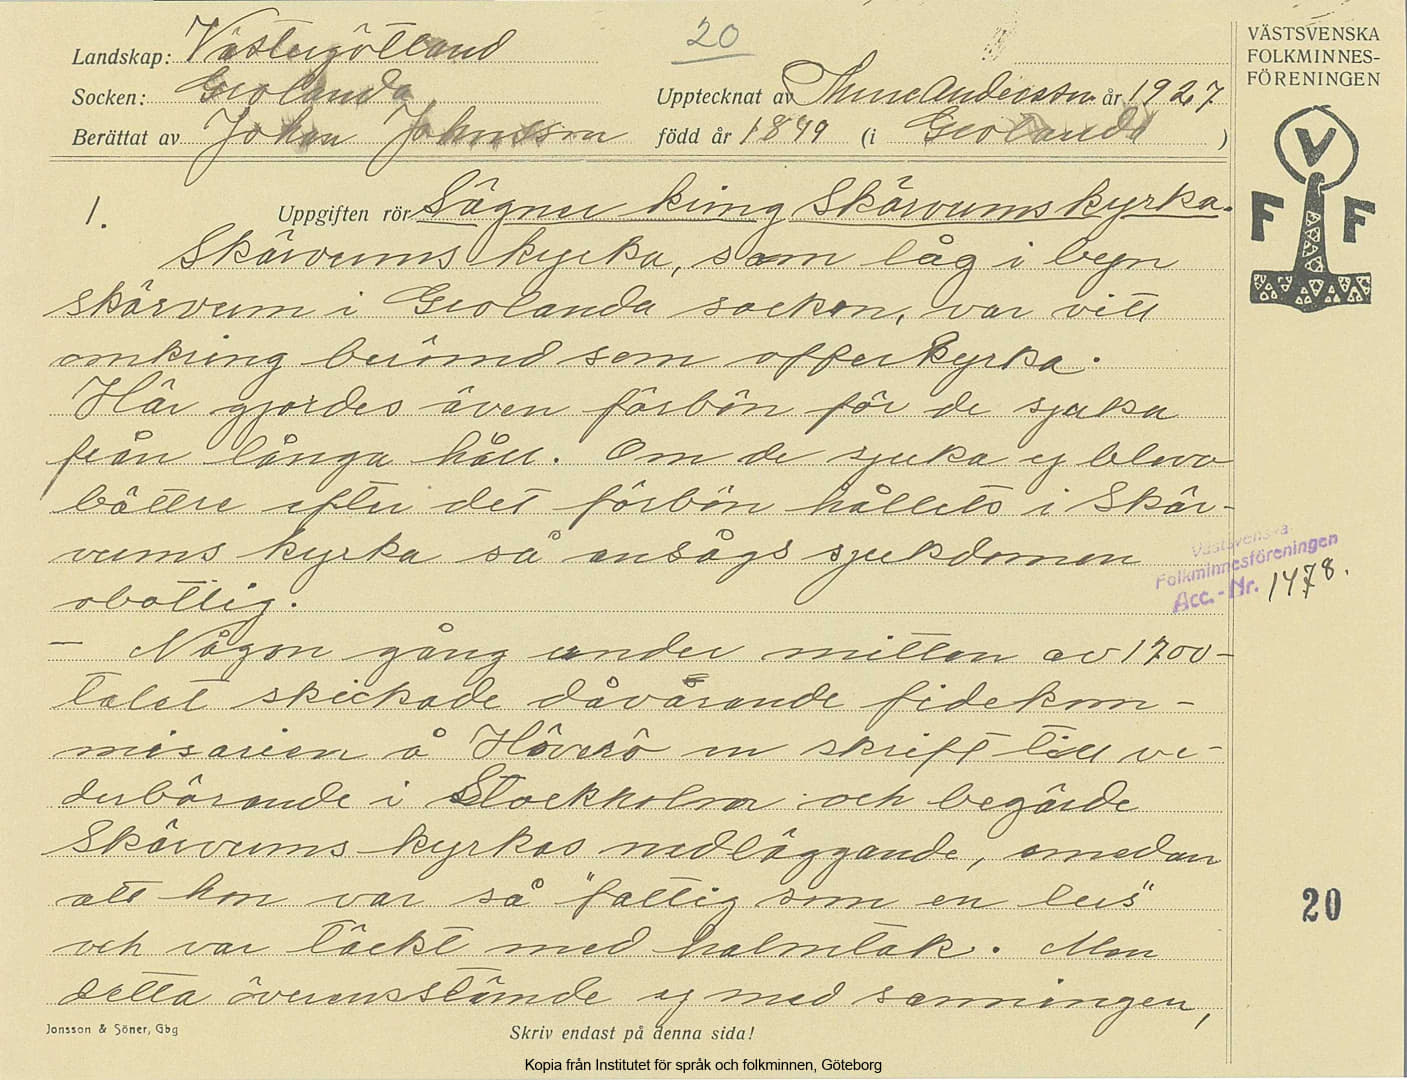 Landskap: Västergötland
Socken: Grolanda
Berättat av Johan Johansson
20
Upptecknat av Thure Andersson år 1927
född år 1849 (i Grolanda )
VÄSTSVENSKA
FOLKMINNES-
FÖRENINGEN
V
F F
1.
Uppgiften rör Sägner kring Skärvums kyrka.
Skärvums kyrka, som låg i byn
skärvum i Grolanda socken, var vitt
omkring berömd som offerkyrka.
Här gjordes även förbön för de sjuka
från långa håll. Om de sjuka ej blevo
bättre efter det förbön hållits i Skär-
vums kyrka så ansågs sjukdomen
obotlig.
– Någon gång under mitten av 1700-
talet skickade dåvarande fidekom-
misarien å Hövrö en skrift till ve-
derbörande i Stockholm och begärde
Skärvums kyrkas nedläggande, emedan
att hon var så "fattig som en lus"
och var täckt med halmtak. Men
detta överensstämde ej med sanningen,
Västsvenska
Folkminnesföreningen
Acc.-Nr. 1478.
20
Jonsson & Söner, Gbg
Skriv endast på denna sida!
Kopia från Institutet för språk och folkminnen, Göteborg